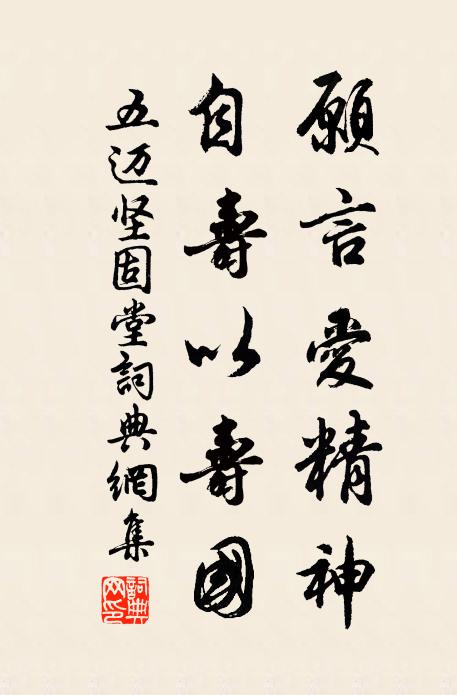 願言愛精神
自壽以壽國
五迈坚固堂詞典網集
詞典网印